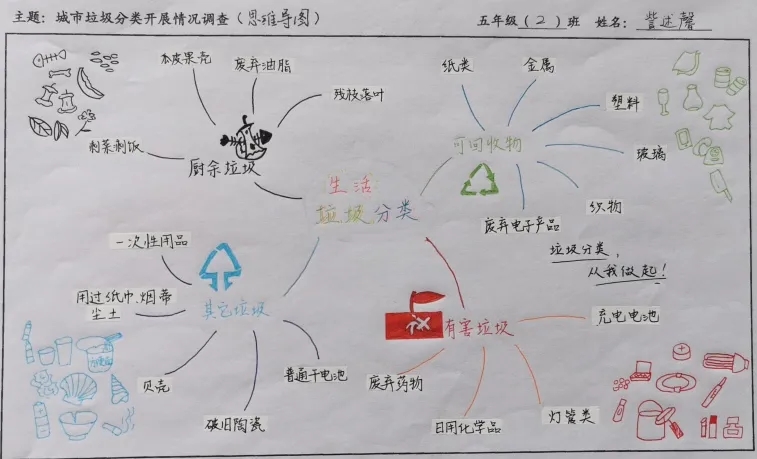 主题：城市垃圾分类开展情况调查（思维导图）
五年级（2）班 姓名：訾述馨
本皮果壳
废弃油脂
残枝落叶
剩菜剩饭
厨余垃圾
纸类
金属
塑料
玻璃
织物
废弃电子产品
可回收物
生活
垃圾分类
垃圾分类，
从我做起！
一次性用品
用过纸巾、烟蒂
尘土
贝壳
破旧陶瓷
普通干电池
其它垃圾
有害垃圾
充电电池
废弃药物
日用化学品
灯管类